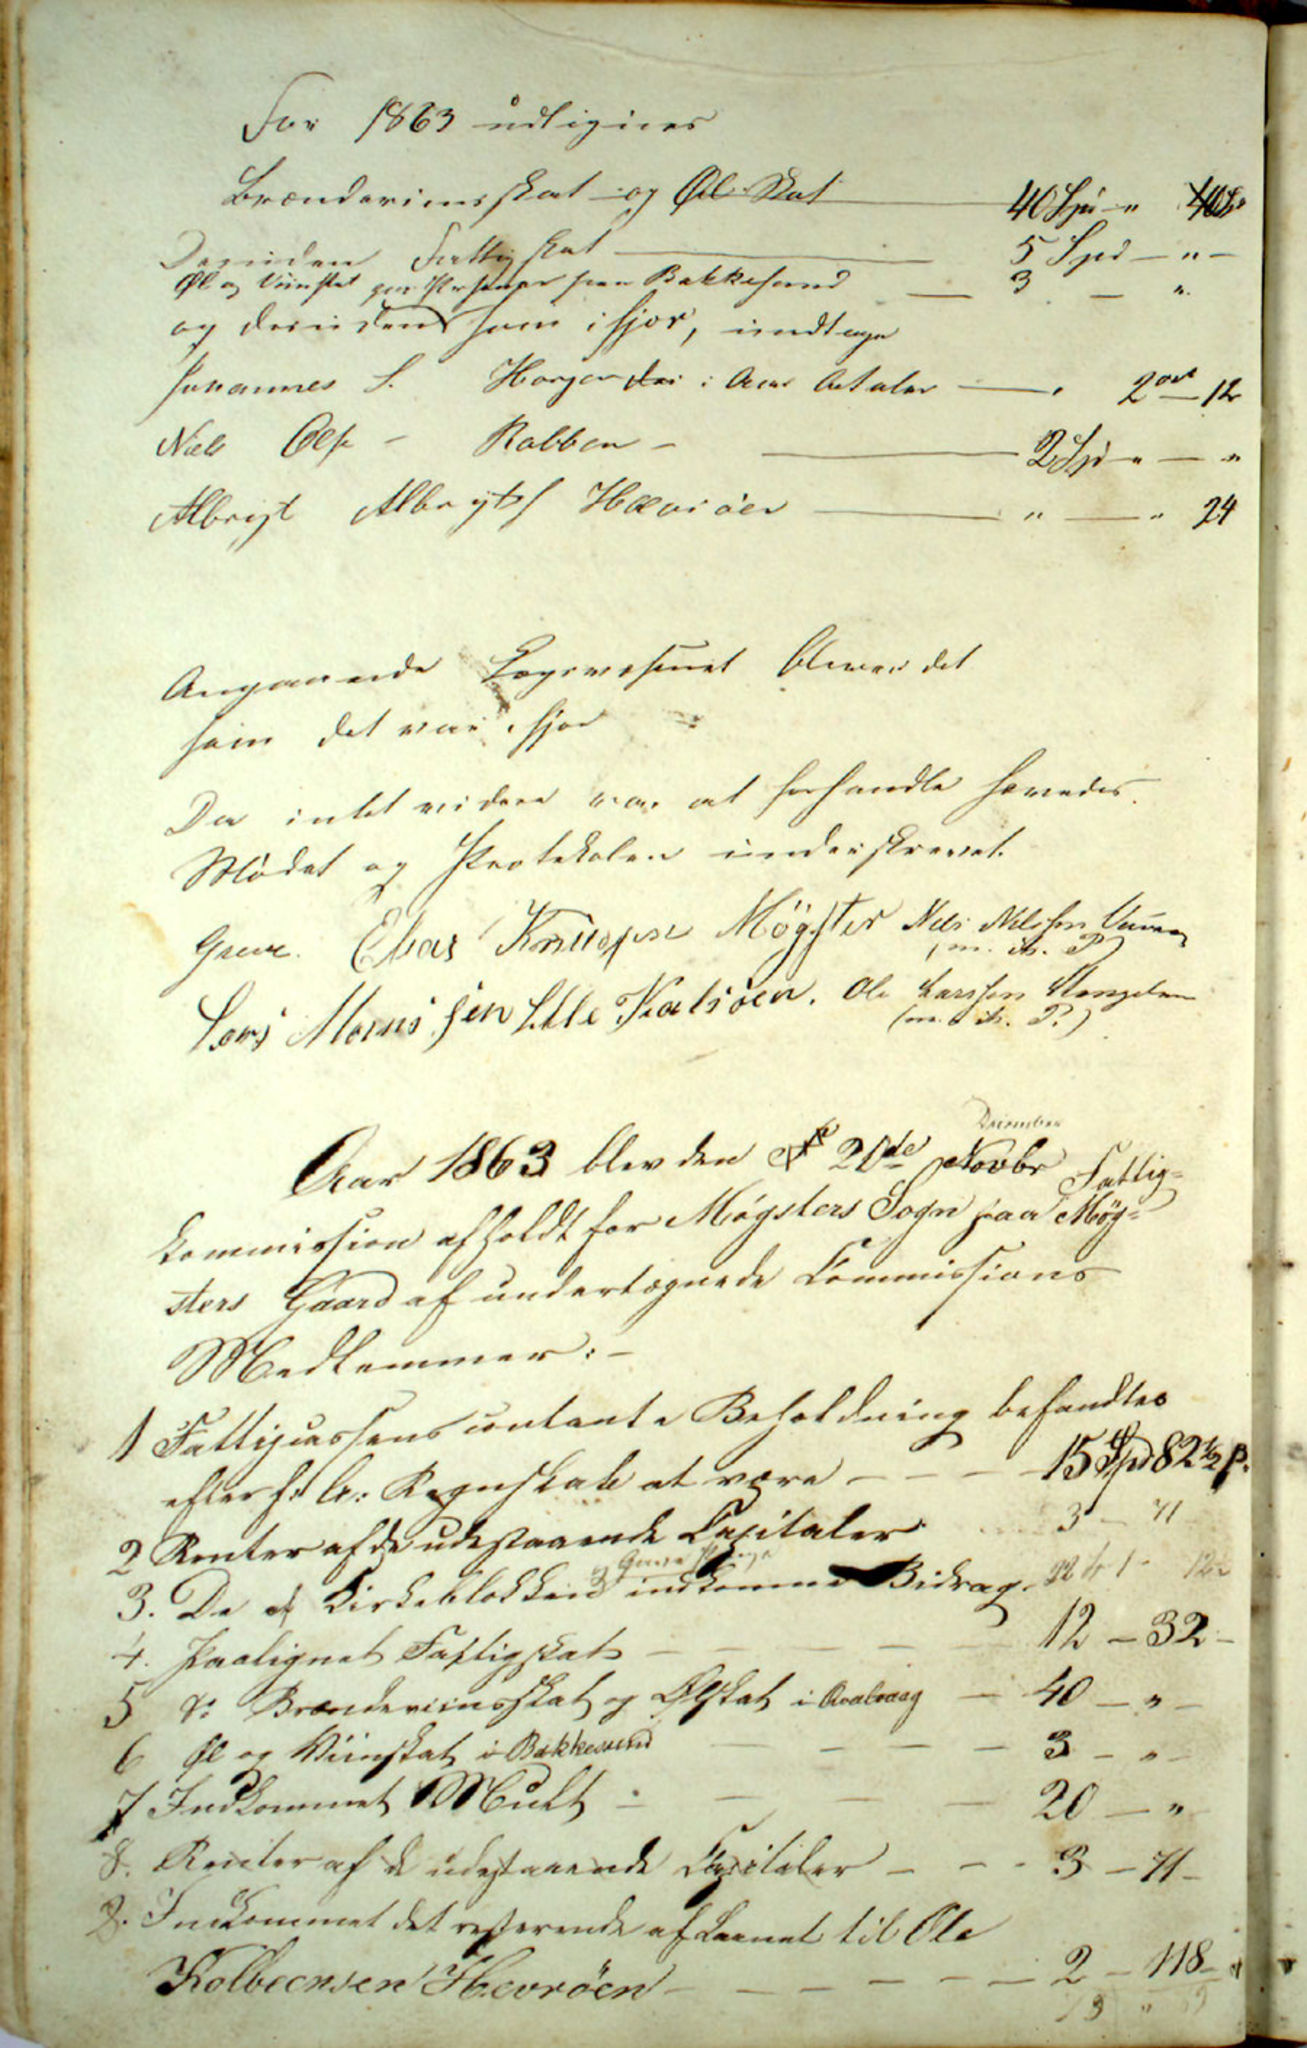 For 1863 udlignes
Brændevinsskat og Øl Skat 40 Spd " 40 s
Desuden Fattigskat 5 Spd - " -
Øl og Viinskat Bakkesund 3 - "
og desuden som ifjor, undtagen
Johannes S. Horgen i Aar betaler 2 ort 12
Niels Ols - Rabben - 2 Spd " - "
Albrigt Albrigts Hævrøen " - " 24
Angaaende Lægsvæsenet bliver det
som det var ifjor
Da intet videre var at forhandle hævedes
Mødet og Protokolen underskrevet.
Greve. Elias Knudsen Møgster Nils Nilssen
(m. i. P.)
Lars Monssen Litle Kalsøen. Ole Larssen Stangeland
(m. i. P.)
December
Aar 1863 blev den 21de Novbr Fattig-
kommission afholdt for Møgsters Sogn paa Møg-
sters Gaard af undertegnede Commissions
Medlemmer: -
1 Fattigcassens contante Beholdning befandtes
efter f: A: Regnskab at være - - - 15 Spd 82 1/2 β.
2 Renter af de udestaaende Capitaler 3 - 71
3. De af Kirkeblokken indkomne Bidrag
4. Paalignet Fattigskat - - - - 12 - 32 -
5 do Brændeviinsskat og Ølskat i Qvalvaag - 40 - " -
6 Øl og Viinskat i Bakkesund - - - - 3 - " -
7 Indkommet Mult - - - - 20 - "
8. Renter af de udestaaende Capitaler - - - 3 - 71 -
8. Indkommet det resterende af Laanet til Ole
Kolbeensen Hevrøen - - - - - 2 - 118 -